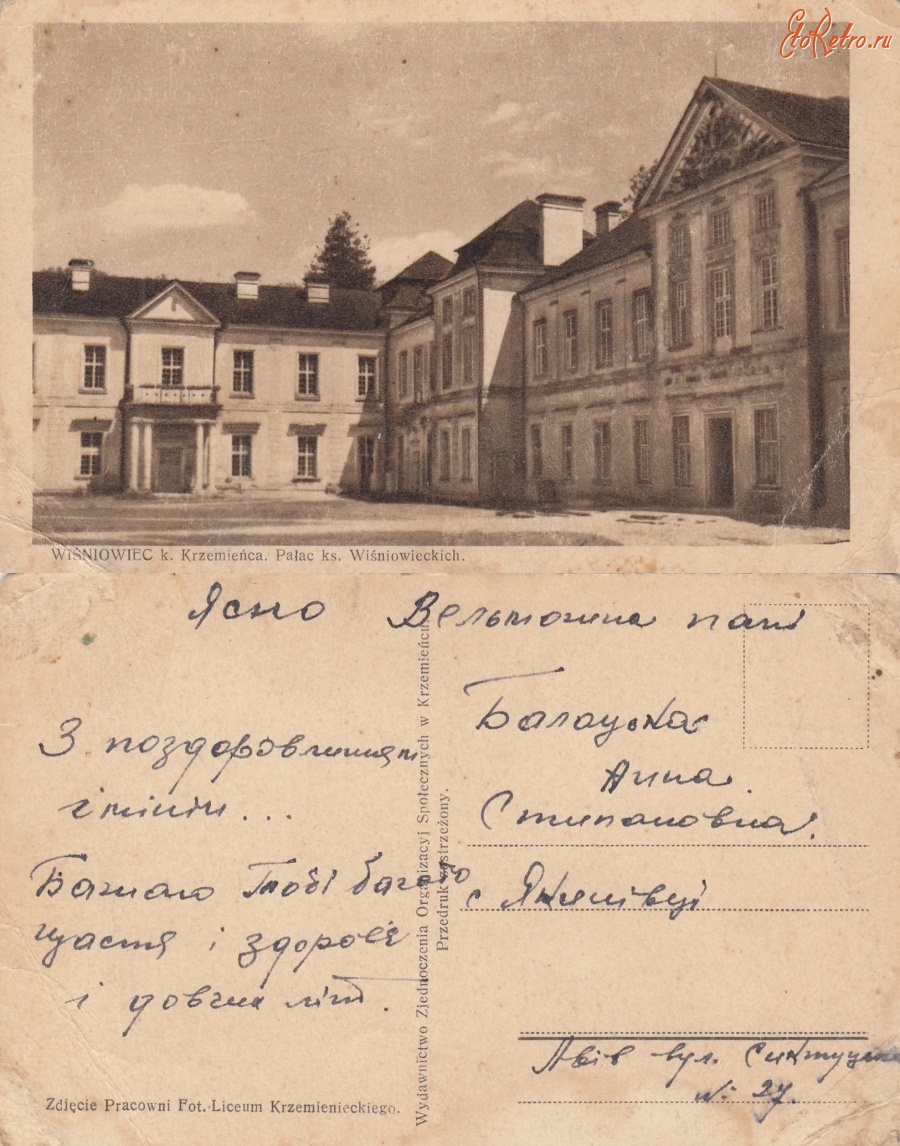 EtoRetro.ru
WIŚNIOWIEC k. Krzemieńca. Pałac ks. Wiśniowieckich.
Ясно Вельможна пані
З поздоровленням
Бажаю Тобі багато
щастя і здоровя
і довгих літ.
Zdjęcie Pracowni Fot. Liceum Krzemienieckiego.
Wydawnictwo Zjednoczenia Organizacyj Społecznych w Krzemieńcu.
Przedruk zastrzeżony.
Анна
Степановна.
с
Львів вул.
№ 27.